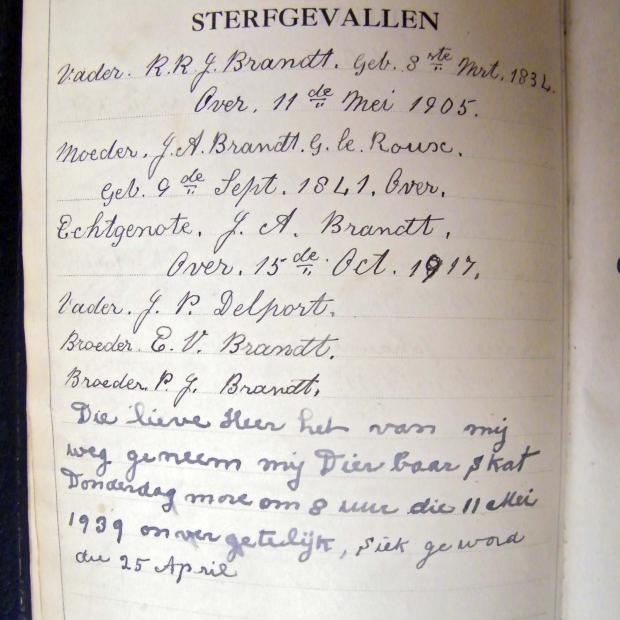 STERFGEVALLEN
Vader. R.R J. Brandt. Geb. 8 ste Mrt. 1834.
Over. 11 de Mei 1905.
Moeder. J.A. Brandt. G. le. Roux.
Geb. 9 de Sept. 1841. Over.
Echtgenote. J. A. Brandt.
Over. 15 de Oct. 1917.
Vader. J. P. Delport.
Broeder. E. V. Brandt.
Broeder. P. J. Brandt.
Die lieve Heer het van mij
weg geneem mij Dier baar skat
Donderdag more om 8 uur die 11 Mei
1939 onvergetelijk, siek geword
die 25 April